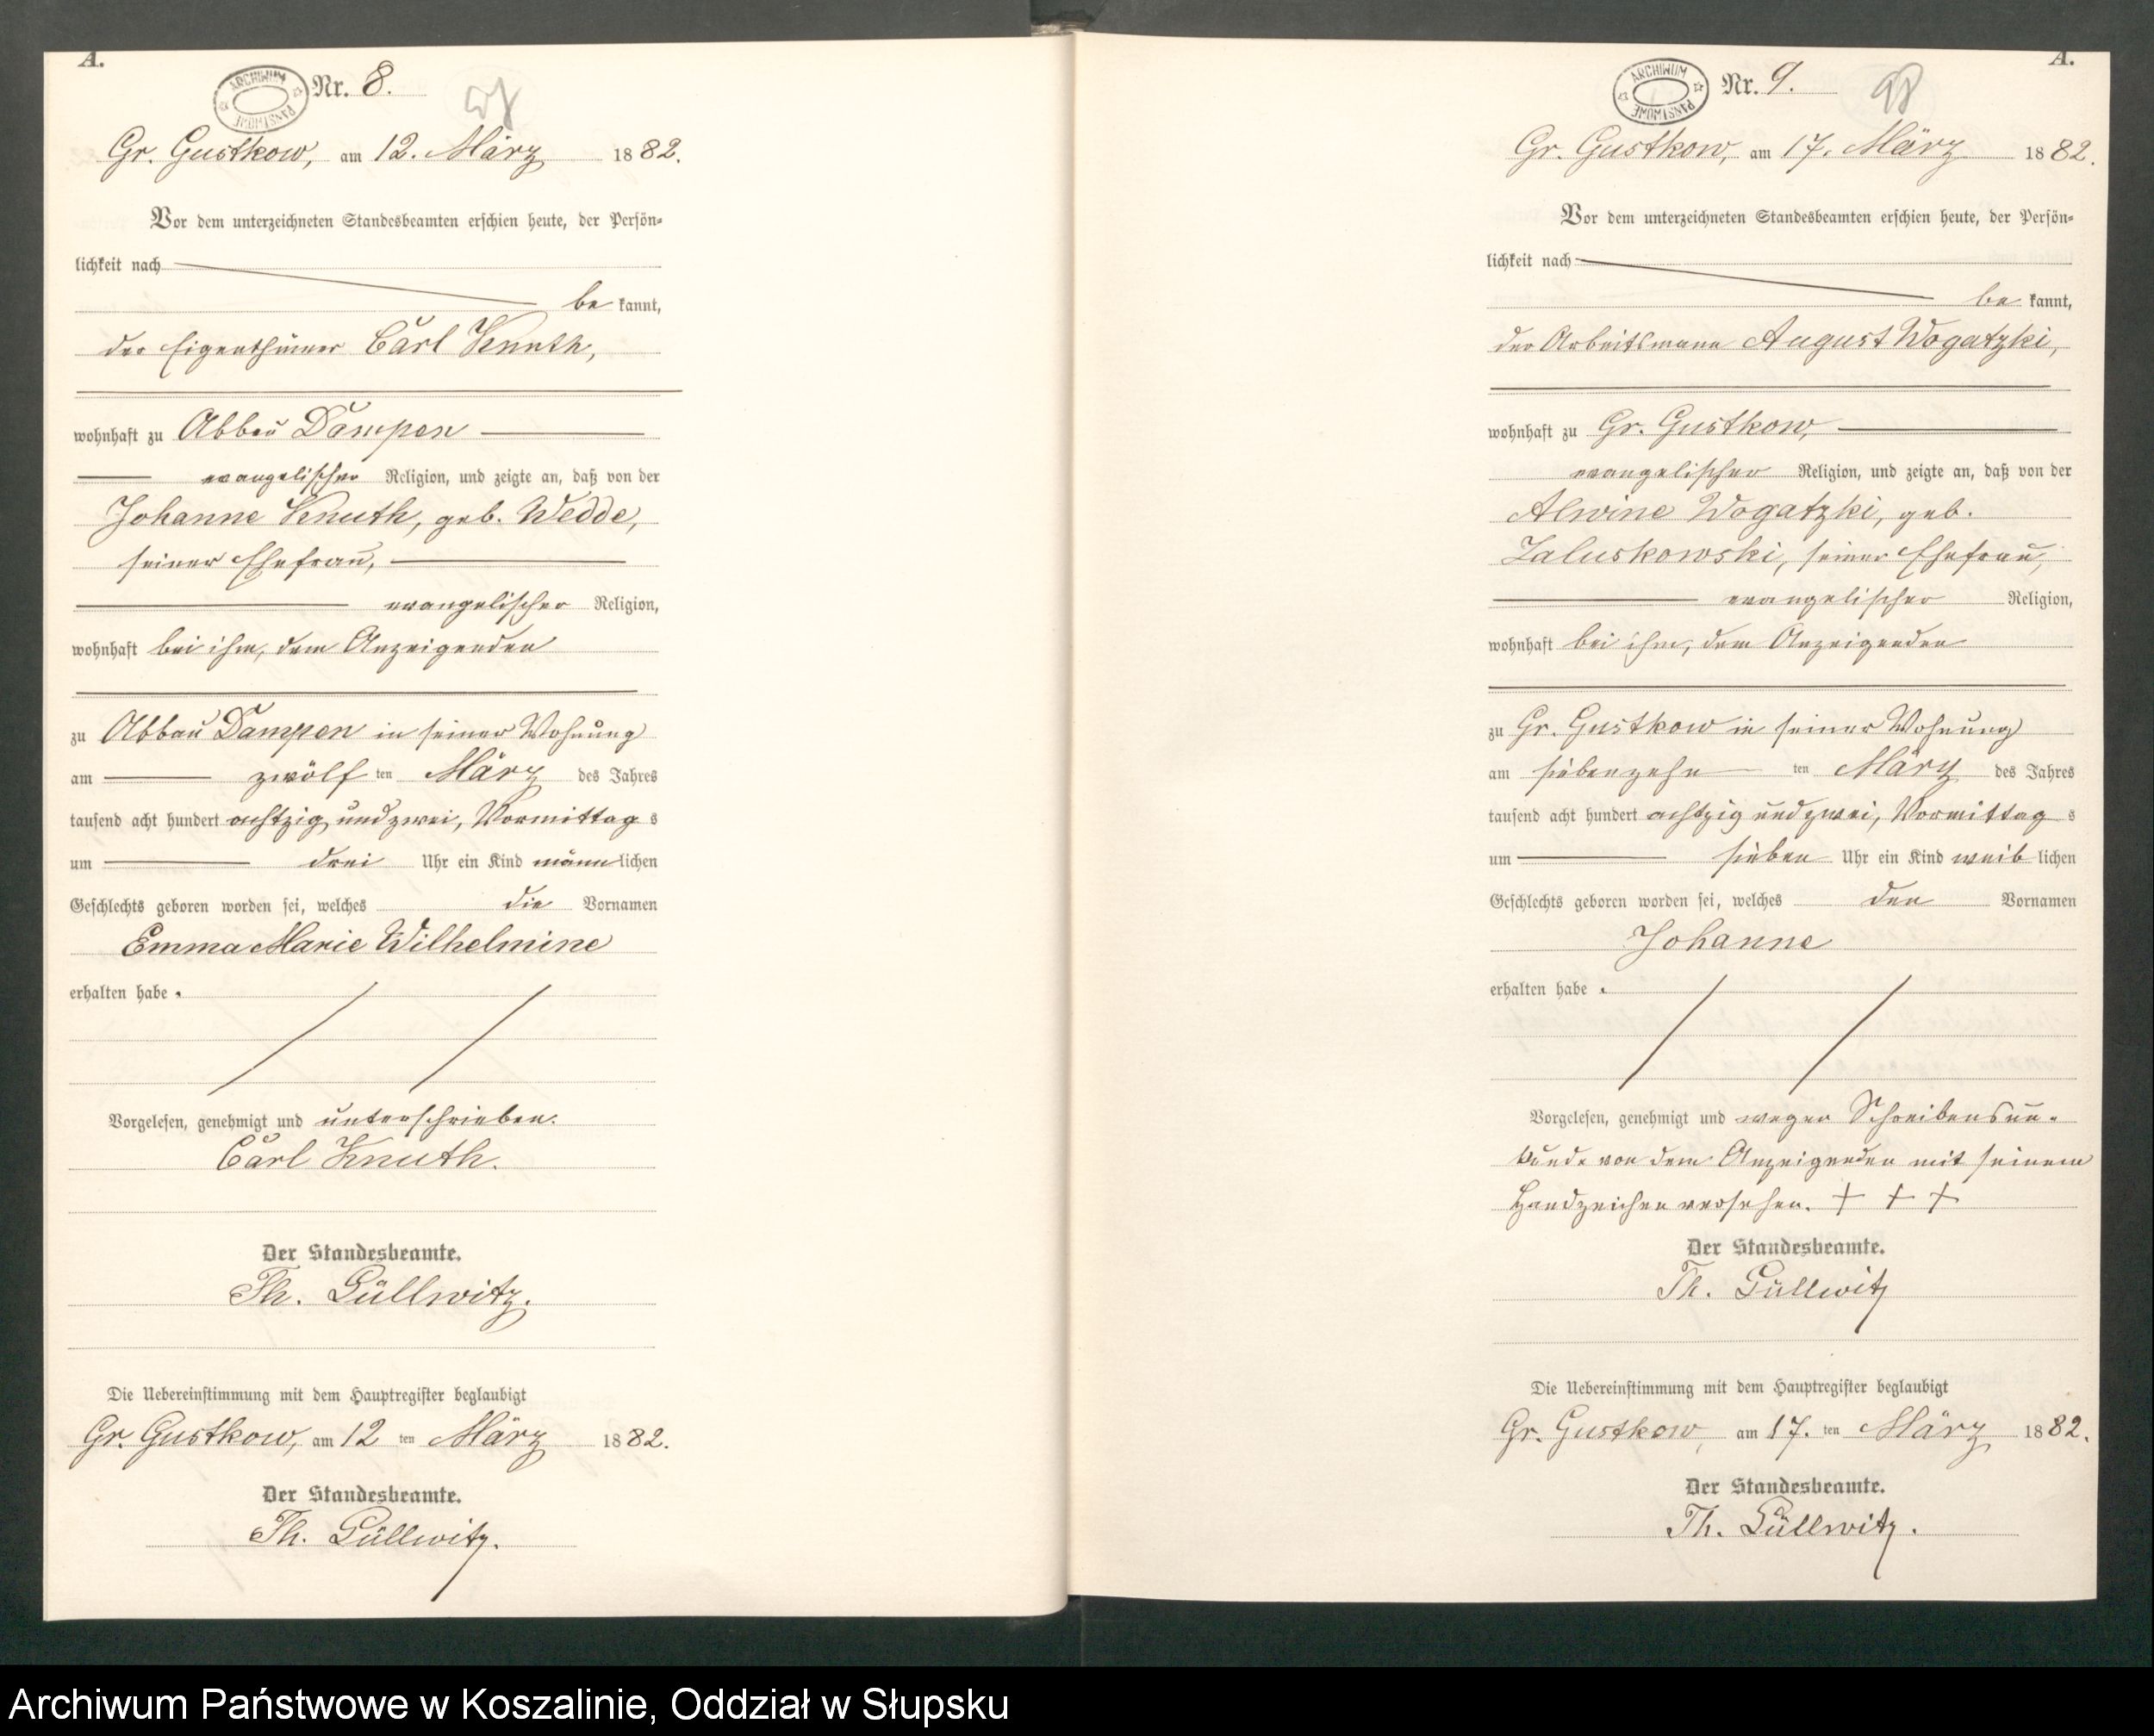 A.
ARCHIWUM PAŃSTWOWE
Nr. 8.
Gr. Gustkow, am 12. März 1882.
Vor dem unterzeichneten Standesbeamten erschien heute, der Persön-
lichkeit nach
be kannt,
der Eigenthümer Carl Knuth,
wohnhaft zu Abbau Dampen
evangelischer Religion, und zeigte an, daß von der
Johanne Knuth, geb. Wedde,
seiner Ehefrau,
evangelischer Religion,
wohnhaft bei ihm, dem Anzeigenden
zu Abbau Dampen in seiner Wohnung
am zwölf ten März des Jahres
tausend acht hundert achtzig und zwei, Vormittag s
um drei Uhr ein Kind männlichen
Geschlechts geboren worden sei, welches die Vornamen
Emma Marie Wilhelmine
erhalten habe.
Vorgelesen, genehmigt und unterschrieben.
Carl Knuth.
Der Standesbeamte.
Th. Güllwitz.
Die Uebereinstimmung mit dem Hauptregister beglaubigt
Gr. Gustkow, am 12 ten März 1882.
Der Standesbeamte.
Th. Güllwitz.
A.
ARCHIWUM PAŃSTWOWE
Nr. 9.
98
Gr. Gustkow, am 17. März 1882.
Vor dem unterzeichneten Standesbeamten erschien heute, der Persön-
lichkeit nach
be kannt,
der Arbeitsmann August Wogatzki,
wohnhaft zu Gr. Gustkow,
evangelischer Religion, und zeigte an, daß von der
Alwine Wogatzki, geb.
Zaluskowski, seiner Ehefrau,
evangelischer Religion,
wohnhaft bei ihm, dem Anzeigenden
zu Gr. Gustkow in seiner Wohnung
am siebenzehn ten März des Jahres
tausend acht hundert achtzig und zwei, Vormittag s
um sieben Uhr ein Kind weib lichen
Geschlechts geboren worden sei, welches den Vornamen
Johanne
erhalten habe.
Vorgelesen, genehmigt und wegen Schreibensun-
kunde von dem Anzeigenden mit seinem
Handzeichen versehen. + + +
Der Standesbeamte.
Th. Güllwitz
Die Uebereinstimmung mit dem Hauptregister beglaubigt
Gr. Gustkow, am 17. ten März 1882.
Der Standesbeamte.
Th. Güllwitz.
Archiwum Państwowe w Koszalinie, Oddział w Słupsku